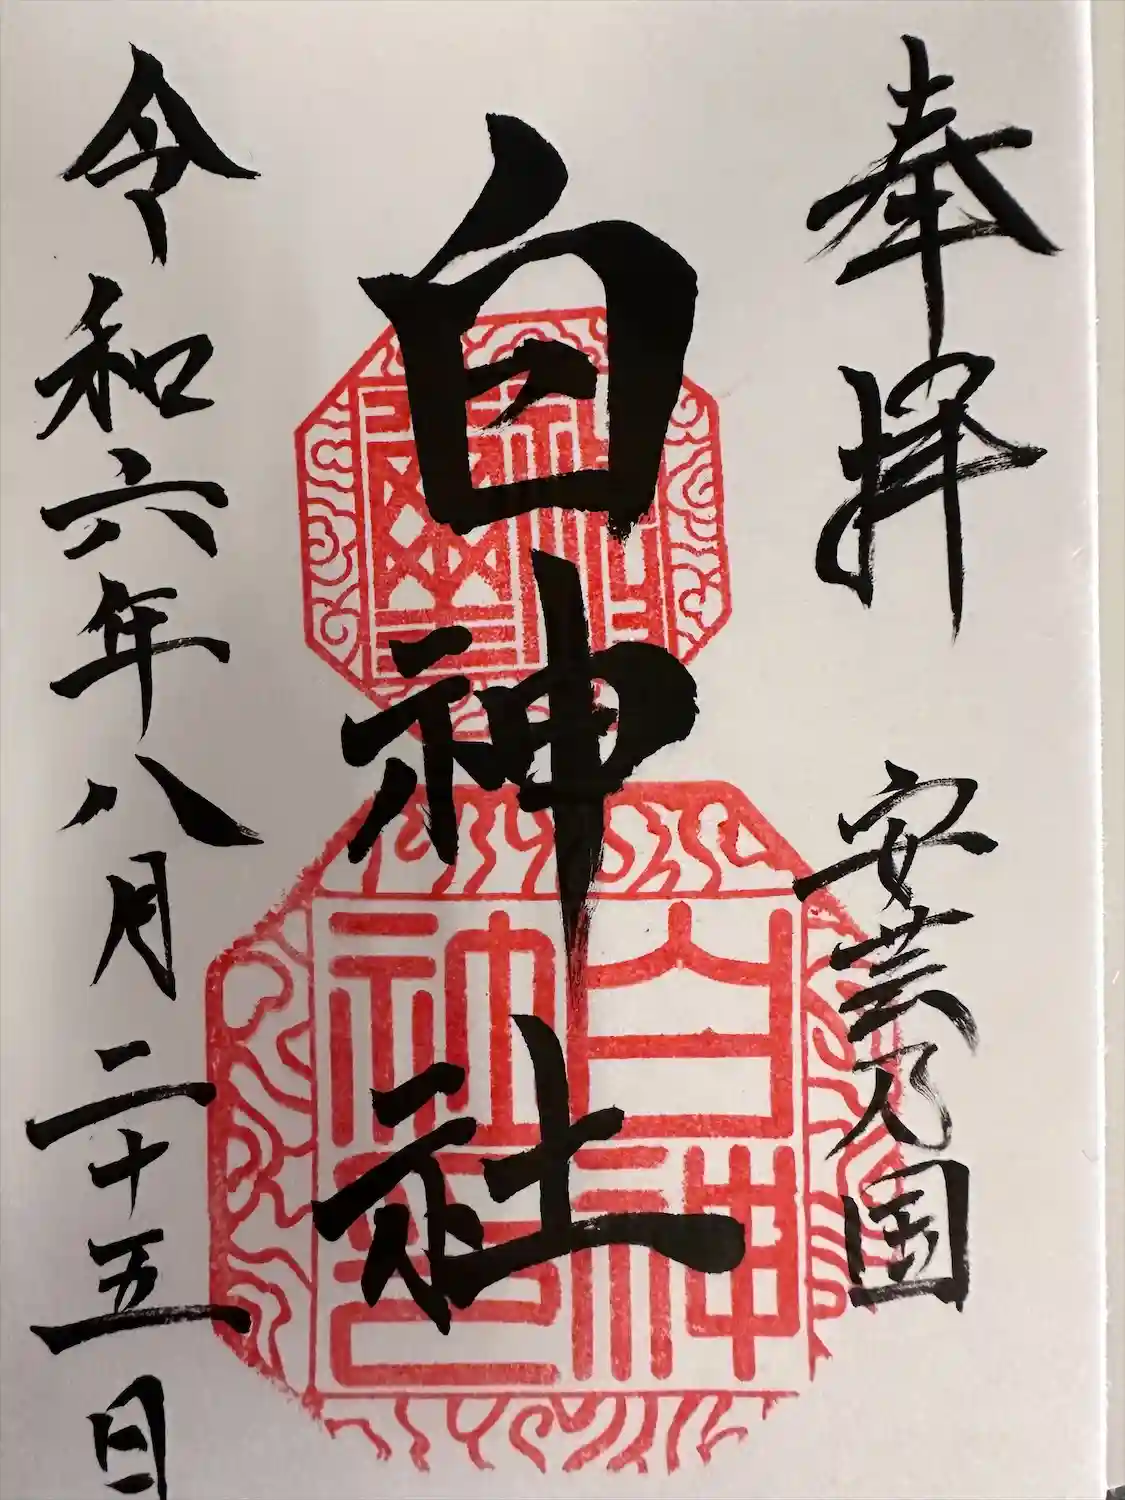 奉拝　安芸乃国
白神社
令和六年八月二十五日